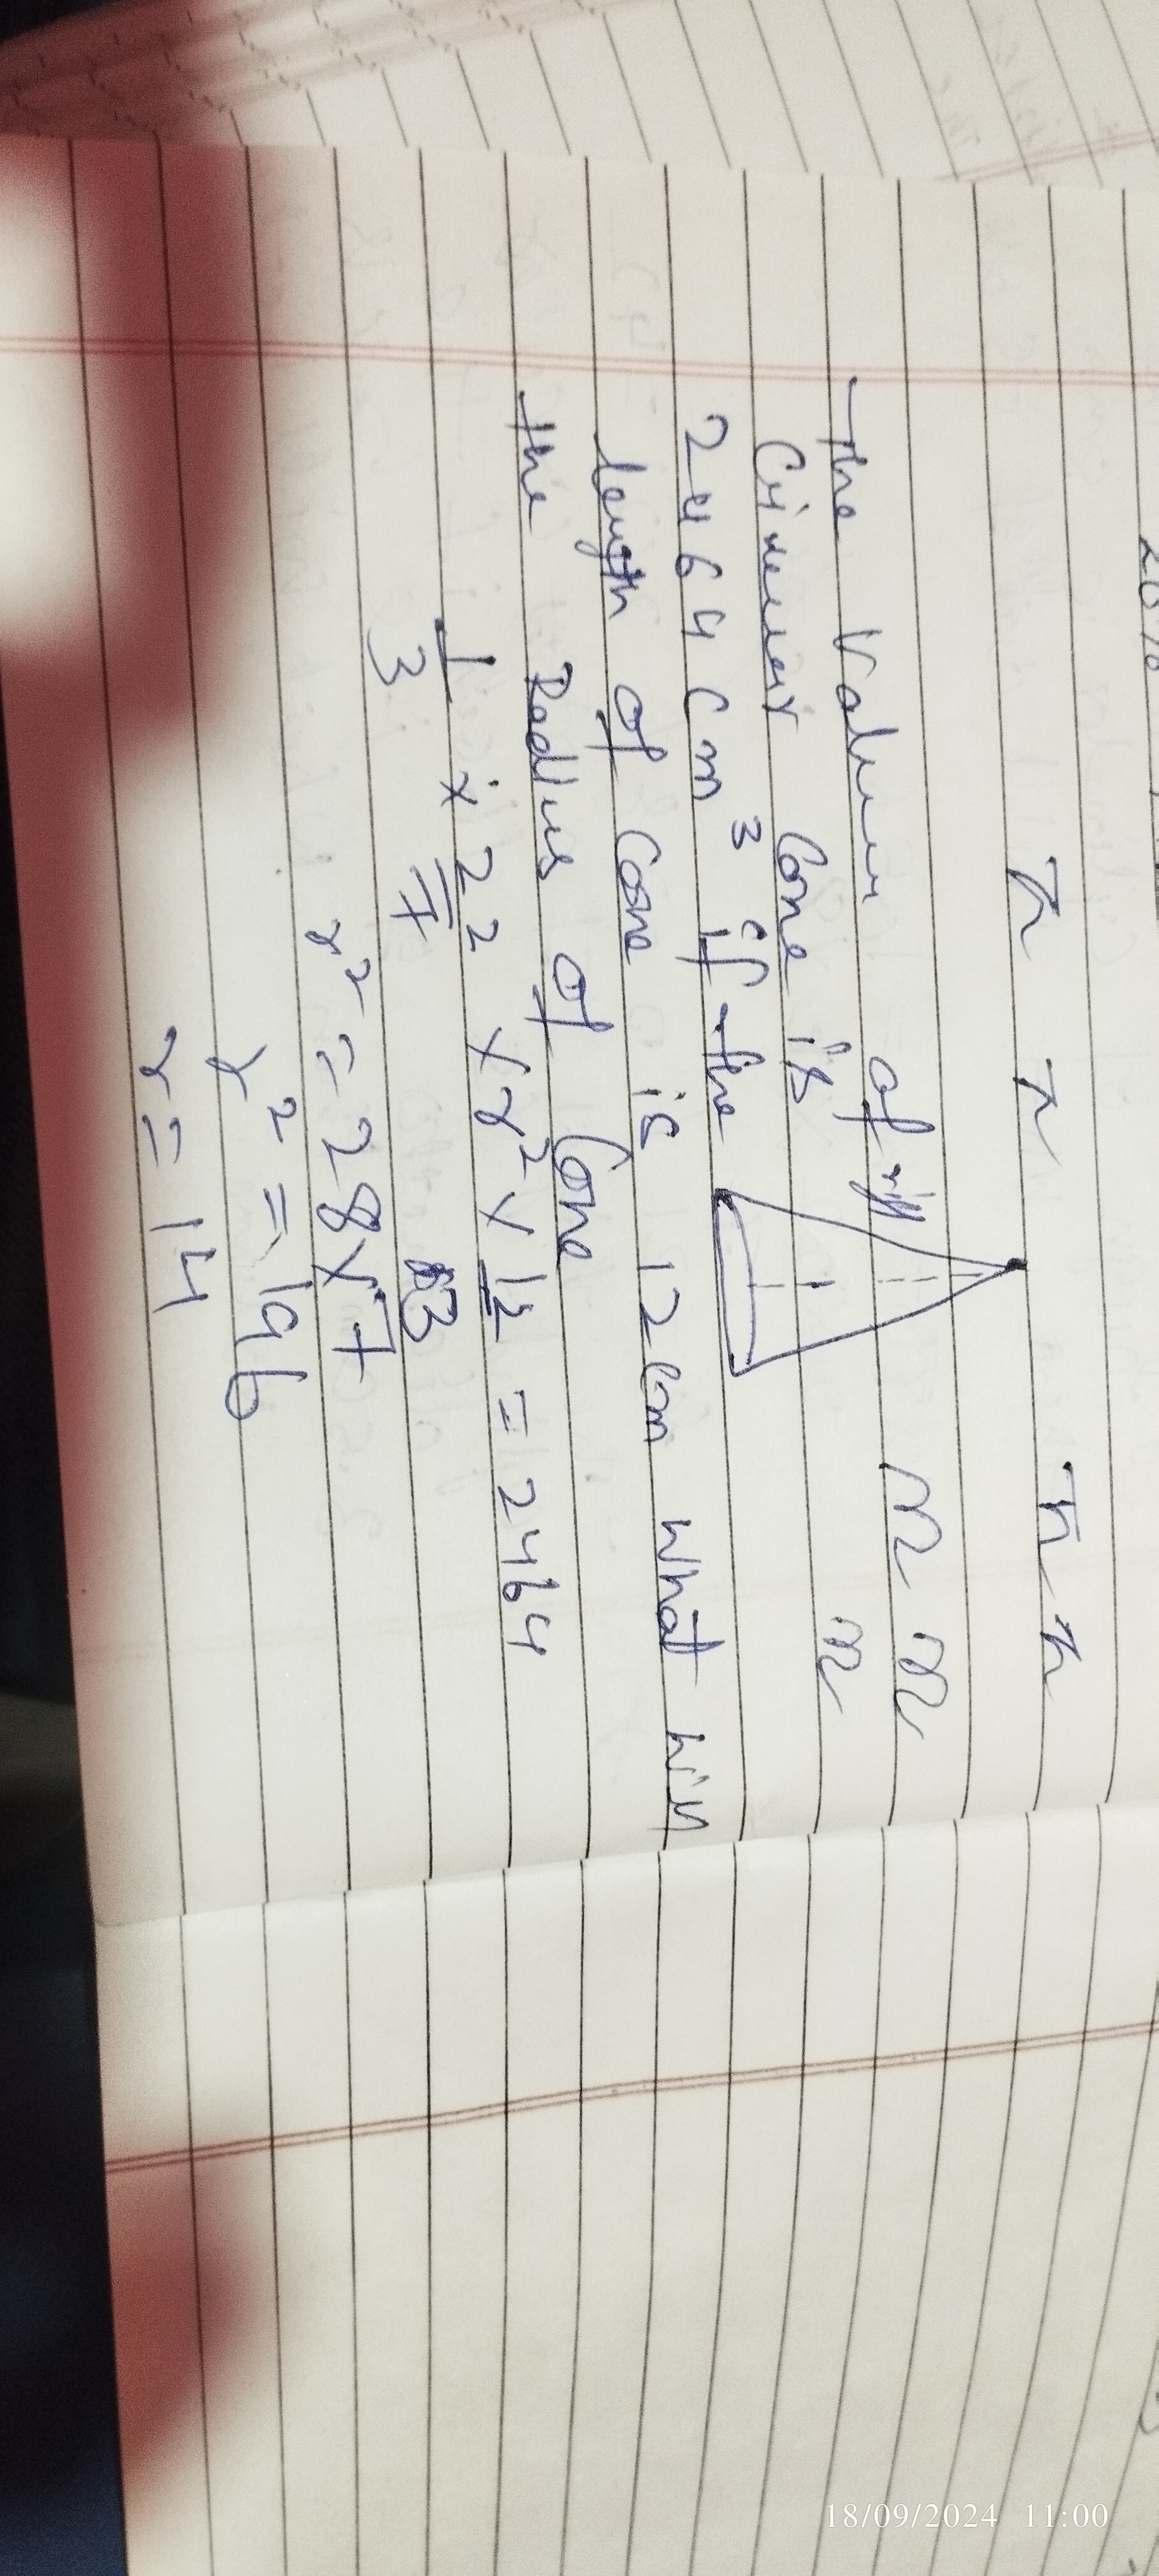 20%
π π π π
π π
π
The Valum of rig
Cirewer Cone is
2464 Cm³ if the
length of Cone is 12 Cm what wim
the Radius of Cone
1/3 × 22/7 × r² × 12 = 2464
3
r² = 28×7
r² = 196
r = 14
18/09/2024 11:00